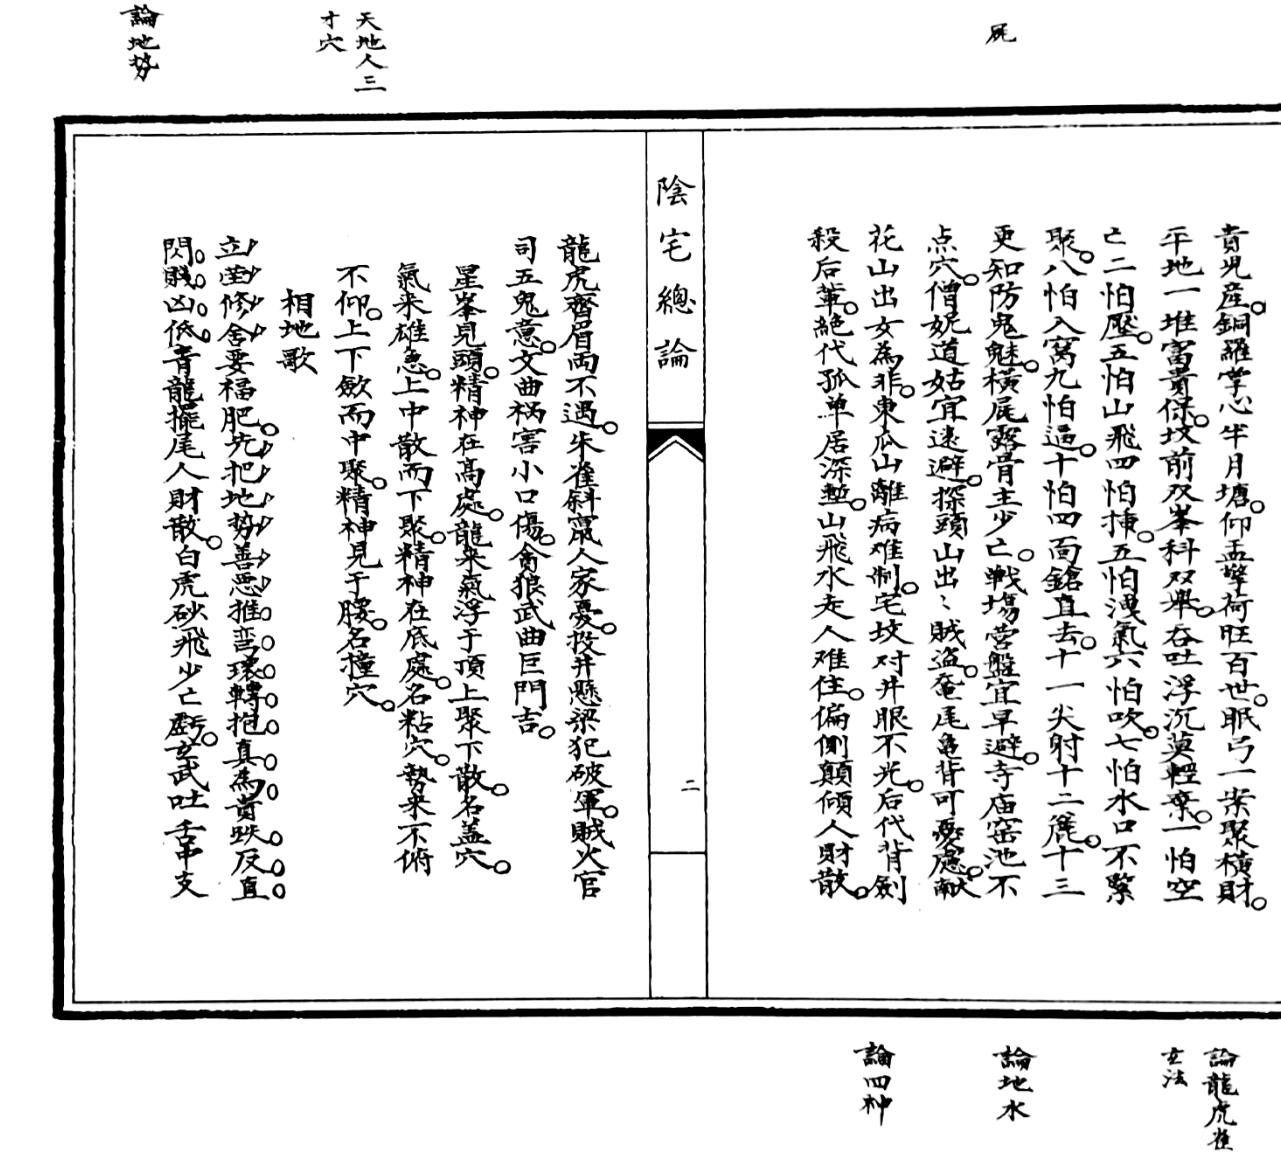 屍
貴児産。銅羅掌心半月塘。仰盂擎荷旺百世。眠弓一案聚橫財。
平地一堆富貴保。坟前双峯科双舉。吞吐浮沉莫輕棄。一怕空
亡二怕壓。五怕山飛四怕挿。五怕洩氣六怕吹。七怕水口不緊
聚。八怕入窝九怕逼。十怕四面鎗直去。十一尖射十二麗。十三
更知防鬼魅。橫屍露骨主少亡。戦場营盤宜早避。寺庙窑池不
点穴。僧妮道姑宜遠避。探頭山出〻賊盗。奄尾龟背可憂慮。献
花山出女為非。東瓜山離病难制。宅坟对井眼不光。后代背劍
殺后輩。絕代孤单居深塹。山飛水走人难住。偏側顛傾人財散。
陰宅總論
二
龍虎齊眉両不遇。朱雀斜竄人家憂。投井懸梁犯破軍。賊火官
司五鬼意。文曲祸害小口傷。貪狼武曲巨門吉。
星峯見頭。精神在高處。龍来氣浮于頂上聚下散。名盖穴。
氣来雄急。上中散而下聚。精神在底處。名粘穴。勢来不俯
不仰。上下歛而中聚。精神見于腰。名撞穴。
相地歌
立塋修舍要福肥。先把地势善恶推。弯環轉抱真為貴。跌反直
閃賤凶低。青龍擺尾人財散。白虎砂飛少亡虧。玄武吐舌申支
天地人三
才穴
論地势
論龍虎雀
玄法
論地水
論四神